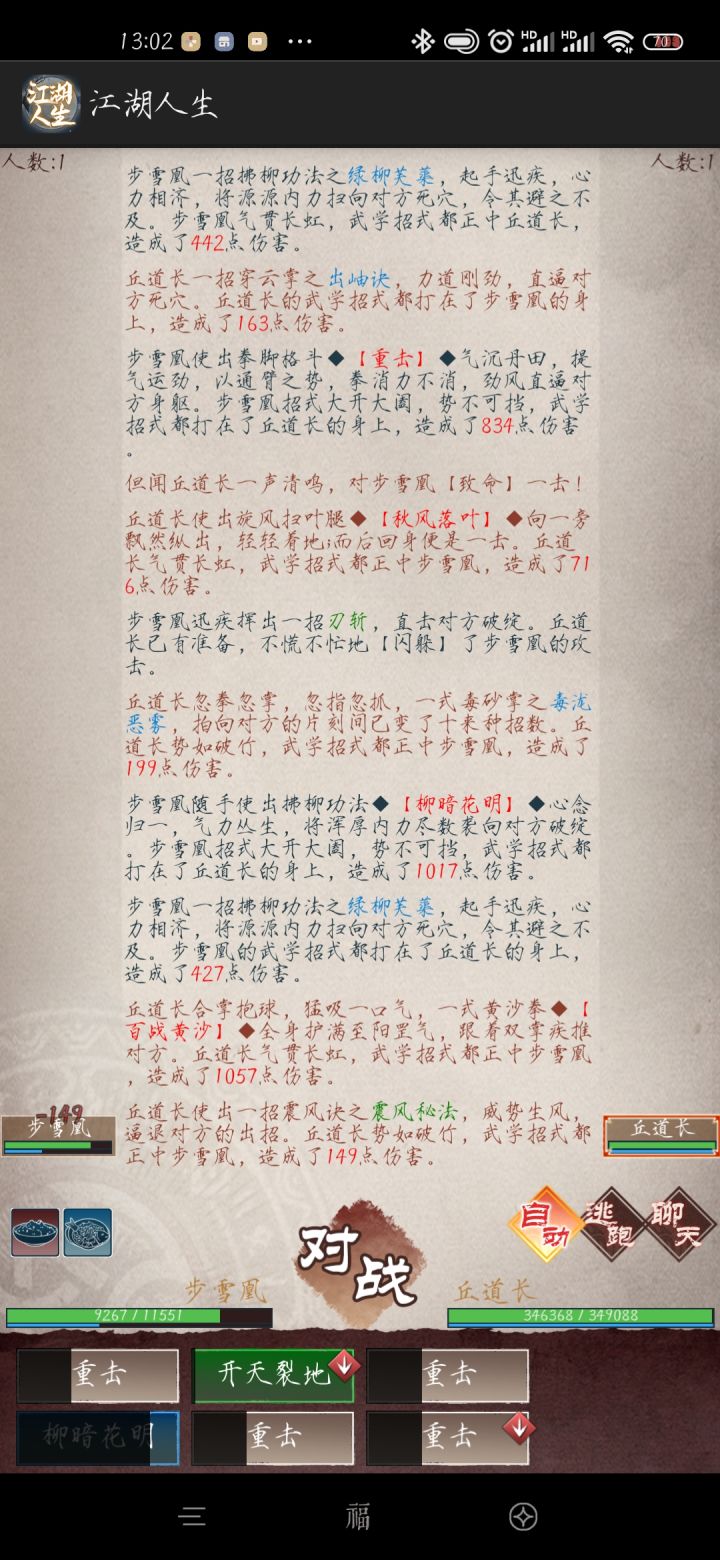 13:02
HD
HD
70
江湖人生
江湖人生
人数:1
人数:1
步雪凰一招拂柳功法之绿柳芙蕖，起手迅疾，心
力相济，将源源内力扫向对方死穴，令其避之不
及。步雪凰气贯长虹，武学招式都正中丘道长，
造成了442点伤害。
丘道长一招穿云掌之出岫诀，力道刚劲，直逼对
方死穴。丘道长的武学招式都打在了步雪凰的身
上，造成了163点伤害。
步雪凰使出拳脚格斗◆【重击】◆气沉丹田，提
气运劲，以通臂之势，拳消力不消，劲风直逼对
方身躯。步雪凰招式大开大阖，势不可挡，武学
招式都打在了丘道长的身上，造成了834点伤害
。
但闻丘道长一声清鸣，对步雪凰【致命】一击！
丘道长使出旋风扫叶腿◆【秋风落叶】◆向一旁
飘然纵出，轻轻着地;而后回身便是一击。丘道
长气贯长虹，武学招式都正中步雪凰，造成了71
6点伤害。
步雪凰迅疾挥出一招刃斩，直击对方破绽。丘道
长已有准备，不慌不忙地【闪躲】了步雪凰的攻
击。
丘道长忽拳忽掌，忽指忽抓，一式毒砂掌之毒泷
恶雾，拍向对方的片刻间已变了十来种招数。丘
道长势如破竹，武学招式都正中步雪凰，造成了
199点伤害。
步雪凰随手使出拂柳功法◆【柳暗花明】◆心念
归一，气力丛生，将浑厚内力尽数袭向对方破绽
。步雪凰招式大开大阖，势不可挡，武学招式都
打在了丘道长的身上，造成了1017点伤害。
步雪凰一招拂柳功法之绿柳芙蕖，起手迅疾，心
力相济，将源源内力扫向对方死穴，令其避之不
及。步雪凰的武学招式都打在了丘道长的身上，
造成了427点伤害。
丘道长合掌抱球，猛吸一口气，一式黄沙拳◆【
百战黄沙】◆全身护满至阳罡气，跟着双掌疾推
对方。丘道长气贯长虹，武学招式都正中步雪凰
，造成了1057点伤害。
丘道长使出一招震风诀之震风秘法，威势生风，
逼退对方的出招。丘道长势如破竹，武学招式都
正中步雪凰，造成了149点伤害。
-149
步雪凰
丘道长
自动
逃跑
聊天
对战
步雪凰
丘道长
9267 / 11551
346368 / 349088
重击
开天裂地
重击
柳暗花明
重击
重击
福